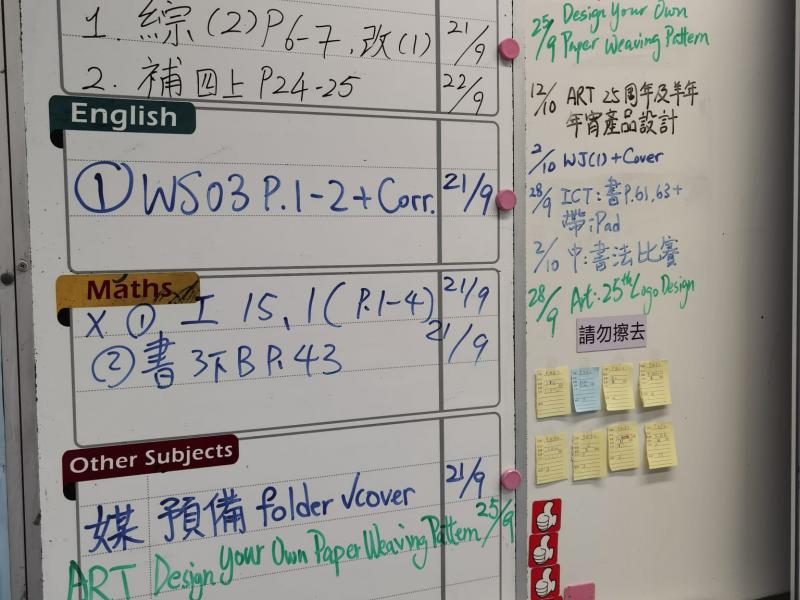 1. 綜(2)P6-7, 改(1) 21/9
2. 補四上 P24-25 22/9
English
① WS03 P.1-2 + Corr. 21/9
Maths
x ① 工 15, 1 (P.1-4) 21/9
② 書 3下B P.43 21/9
Other Subjects
媒 預備 folder √cover 21/9
ART Design Your Own Paper Weaving Pattern 25/9
25/9 Design Your Own
Paper Weaving Pattern
12/10 ART 25周年及羊年
年宵產品設計
2/10 WJ(1)+Cover
28/9 ICT:書P.61,63+
帶iPad
2/10 中:書法比賽
28/9 Art:25th Logo Design
請勿擦去